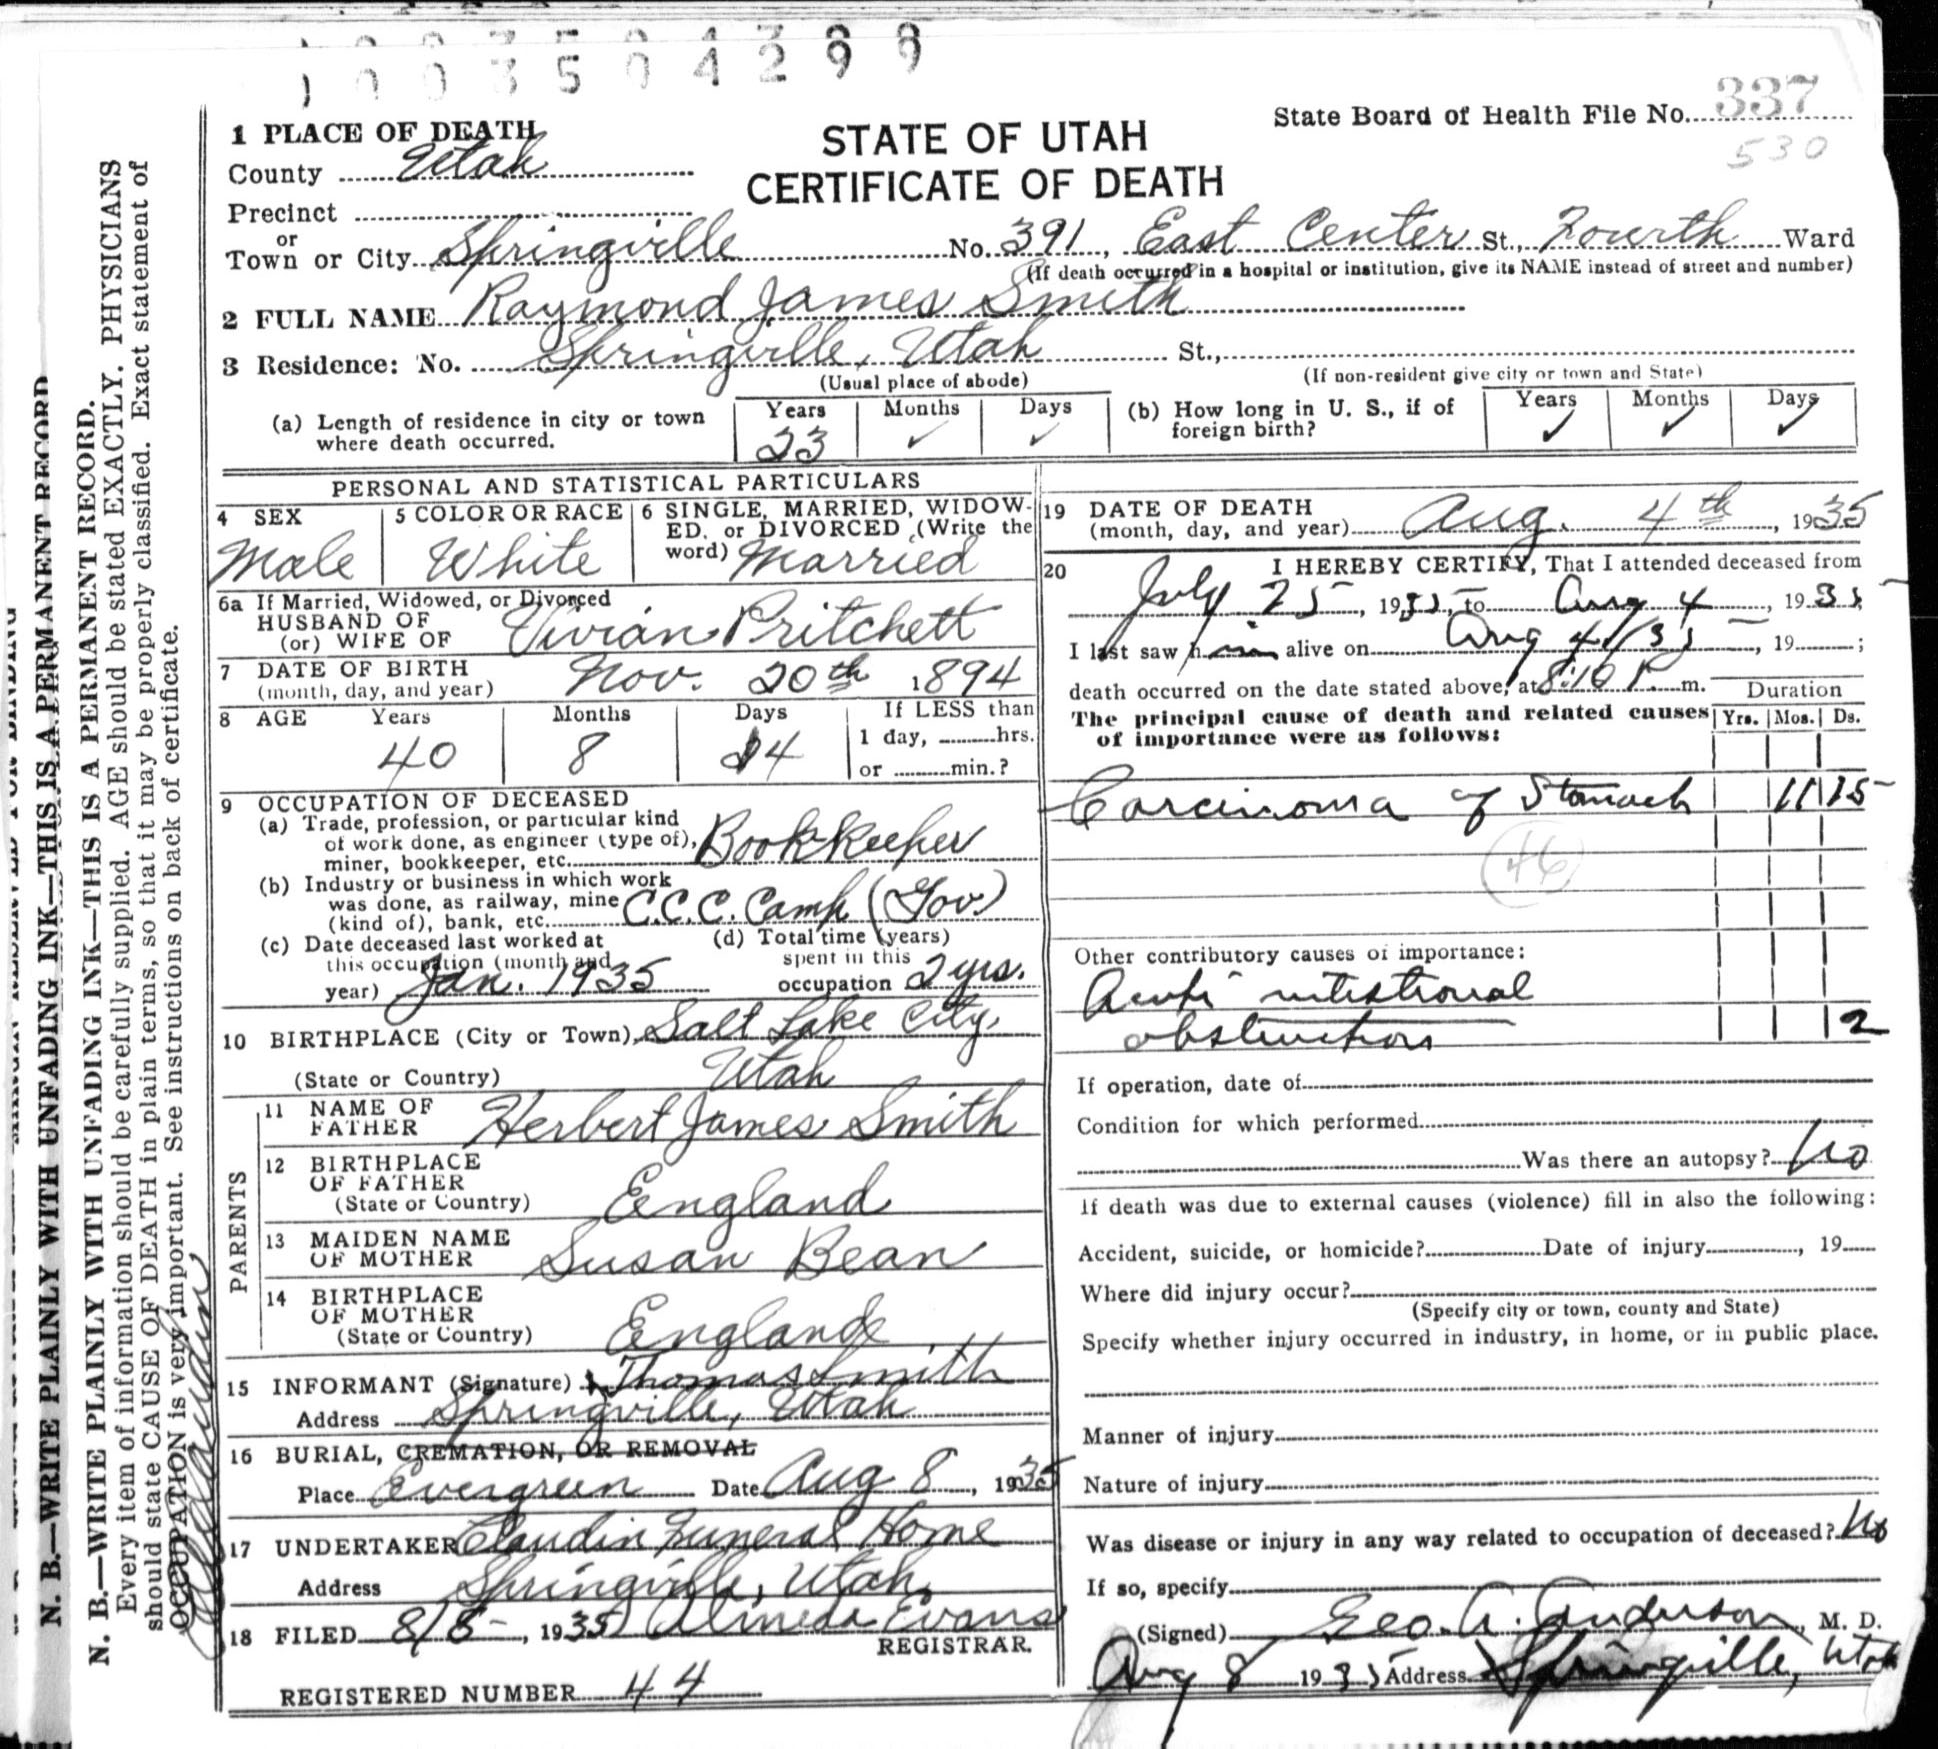 1003504299
State Board of Health File No. 337
530
STATE OF UTAH
CERTIFICATE OF DEATH
1 PLACE OF DEATH
County Utah
Precinct
or
Town or City Springville No. 391, East Center St., Fourth Ward
(If death occurred in a hospital or institution, give its NAME instead of street and number)
2 FULL NAME Raymond James Smith
3 Residence: No. Springville, Utah St.,
(Usual place of abode) (If non-resident give city or town and State)
(a) Length of residence in city or town where death occurred. Years 23 Months ✓ Days ✓
(b) How long in U. S., if of foreign birth? Years ✓ Months ✓ Days ✓
PERSONAL AND STATISTICAL PARTICULARS
4 SEX Male
5 COLOR OR RACE White
6 SINGLE, MARRIED, WIDOWED, or DIVORCED (Write the word) Married
6a If Married, Widowed, or Divorced
HUSBAND OF
(or) WIFE OF Vivian Pritchett
7 DATE OF BIRTH
(month, day, and year) Nov. 20th 1894
8 AGE Years 40 Months 8 Days 14
If LESS than
1 day, hrs.
or min.?
9 OCCUPATION OF DECEASED
(a) Trade, profession, or particular kind
of work done, as engineer (type of),
miner, bookkeeper, etc. Bookkeeper
(b) Industry or business in which work
was done, as railway, mine
(kind of), bank, etc. C.C.C. Camp (Gov.)
(c) Date deceased last worked at
this occupation (month and
year) Jan. 1935
(d) Total time (years)
spent in this
occupation 2 yrs.
10 BIRTHPLACE (City or Town), Salt Lake City,
(State or Country) Utah
PARENTS
11 NAME OF
FATHER Herbert James Smith
12 BIRTHPLACE
OF FATHER
(State or Country) England
13 MAIDEN NAME
OF MOTHER Susan Bean
14 BIRTHPLACE
OF MOTHER
(State or Country) England
15 INFORMANT (Signature) Thomas Smith
Address Springville, Utah
16 BURIAL, CREMATION, OR REMOVAL
Place Evergreen Date Aug 8, 1935
17 UNDERTAKER Claudin Funeral Home
Address Springville, Utah
18 FILED 8/8, 1935 Almeda Evans
REGISTRAR.
REGISTERED NUMBER 44
19 DATE OF DEATH
(month, day, and year) Aug. 4th, 1935
20 I HEREBY CERTIFY, That I attended deceased from
July 25, 1935, to Aug 4, 1935
I last saw him alive on Aug 4/35, 19 ;
death occurred on the date stated above, at 8:10 P. m.
Duration
The principal cause of death and related causes Yrs. Mos. Ds.
of importance were as follows:
Carcinoma of Stomach 11 15
46
Other contributory causes of importance:
Acute intestional
obstruction 2
If operation, date of
Condition for which performed
Was there an autopsy? No
If death was due to external causes (violence) fill in also the following:
Accident, suicide, or homicide? Date of injury , 19
Where did injury occur?
(Specify city or town, county and State)
Specify whether injury occurred in industry, in home, or in public place.
Manner of injury
Nature of injury
Was disease or injury in any way related to occupation of deceased? No
If so, specify
(Signed) Geo. A. Anderson, M. D.
Aug 8 1935 Address Springville, Utah
N. B.—WRITE PLAINLY WITH UNFADING INK—THIS IS A PERMANENT RECORD
N. B.—WRITE PLAINLY WITH UNFADING INK—THIS IS A PERMANENT RECORD.
Every item of information should be carefully supplied. AGE should be stated EXACTLY. PHYSICIANS
should state CAUSE OF DEATH in plain terms, so that it may be properly classified. Exact statement of
OCCUPATION is very important. See instructions on back of certificate.